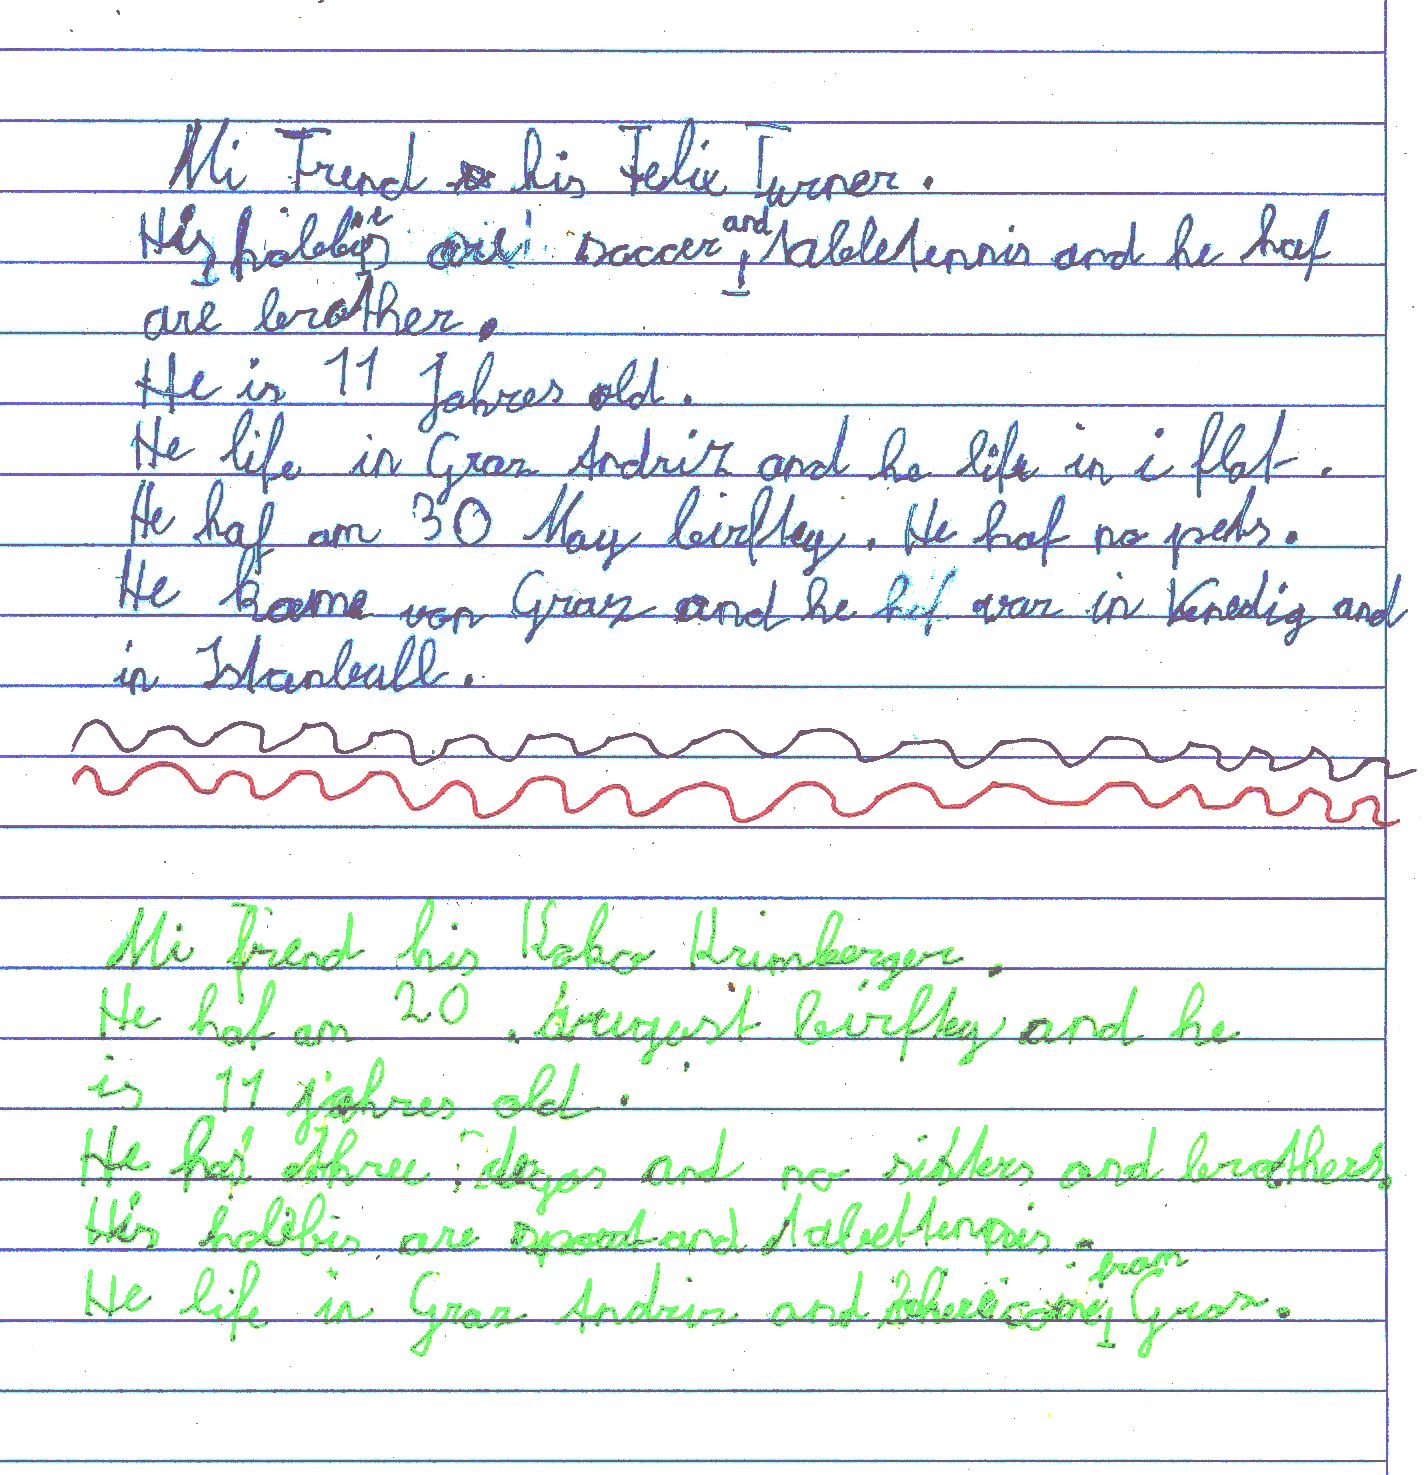 Mi Frend his Felix Turner.
His hobbies are soccer and tabletennis and he haf
are brother.
He is 11 Jahres old.
He life in Graz Andriz and he life in i flat.
He haf am 30 May birftey. He haf no pets.
He kame von Graz and he haf war in Venedig and
in Istanbull.
Mi frend his Koko Krimberger.
He haf am 20. August birftey and he
is 11 jahres old.
He has three dogos and no sisters and brothers.
His hobbis are sport and tabeltennis.
He life in Graz Andriz and he come from Graz.